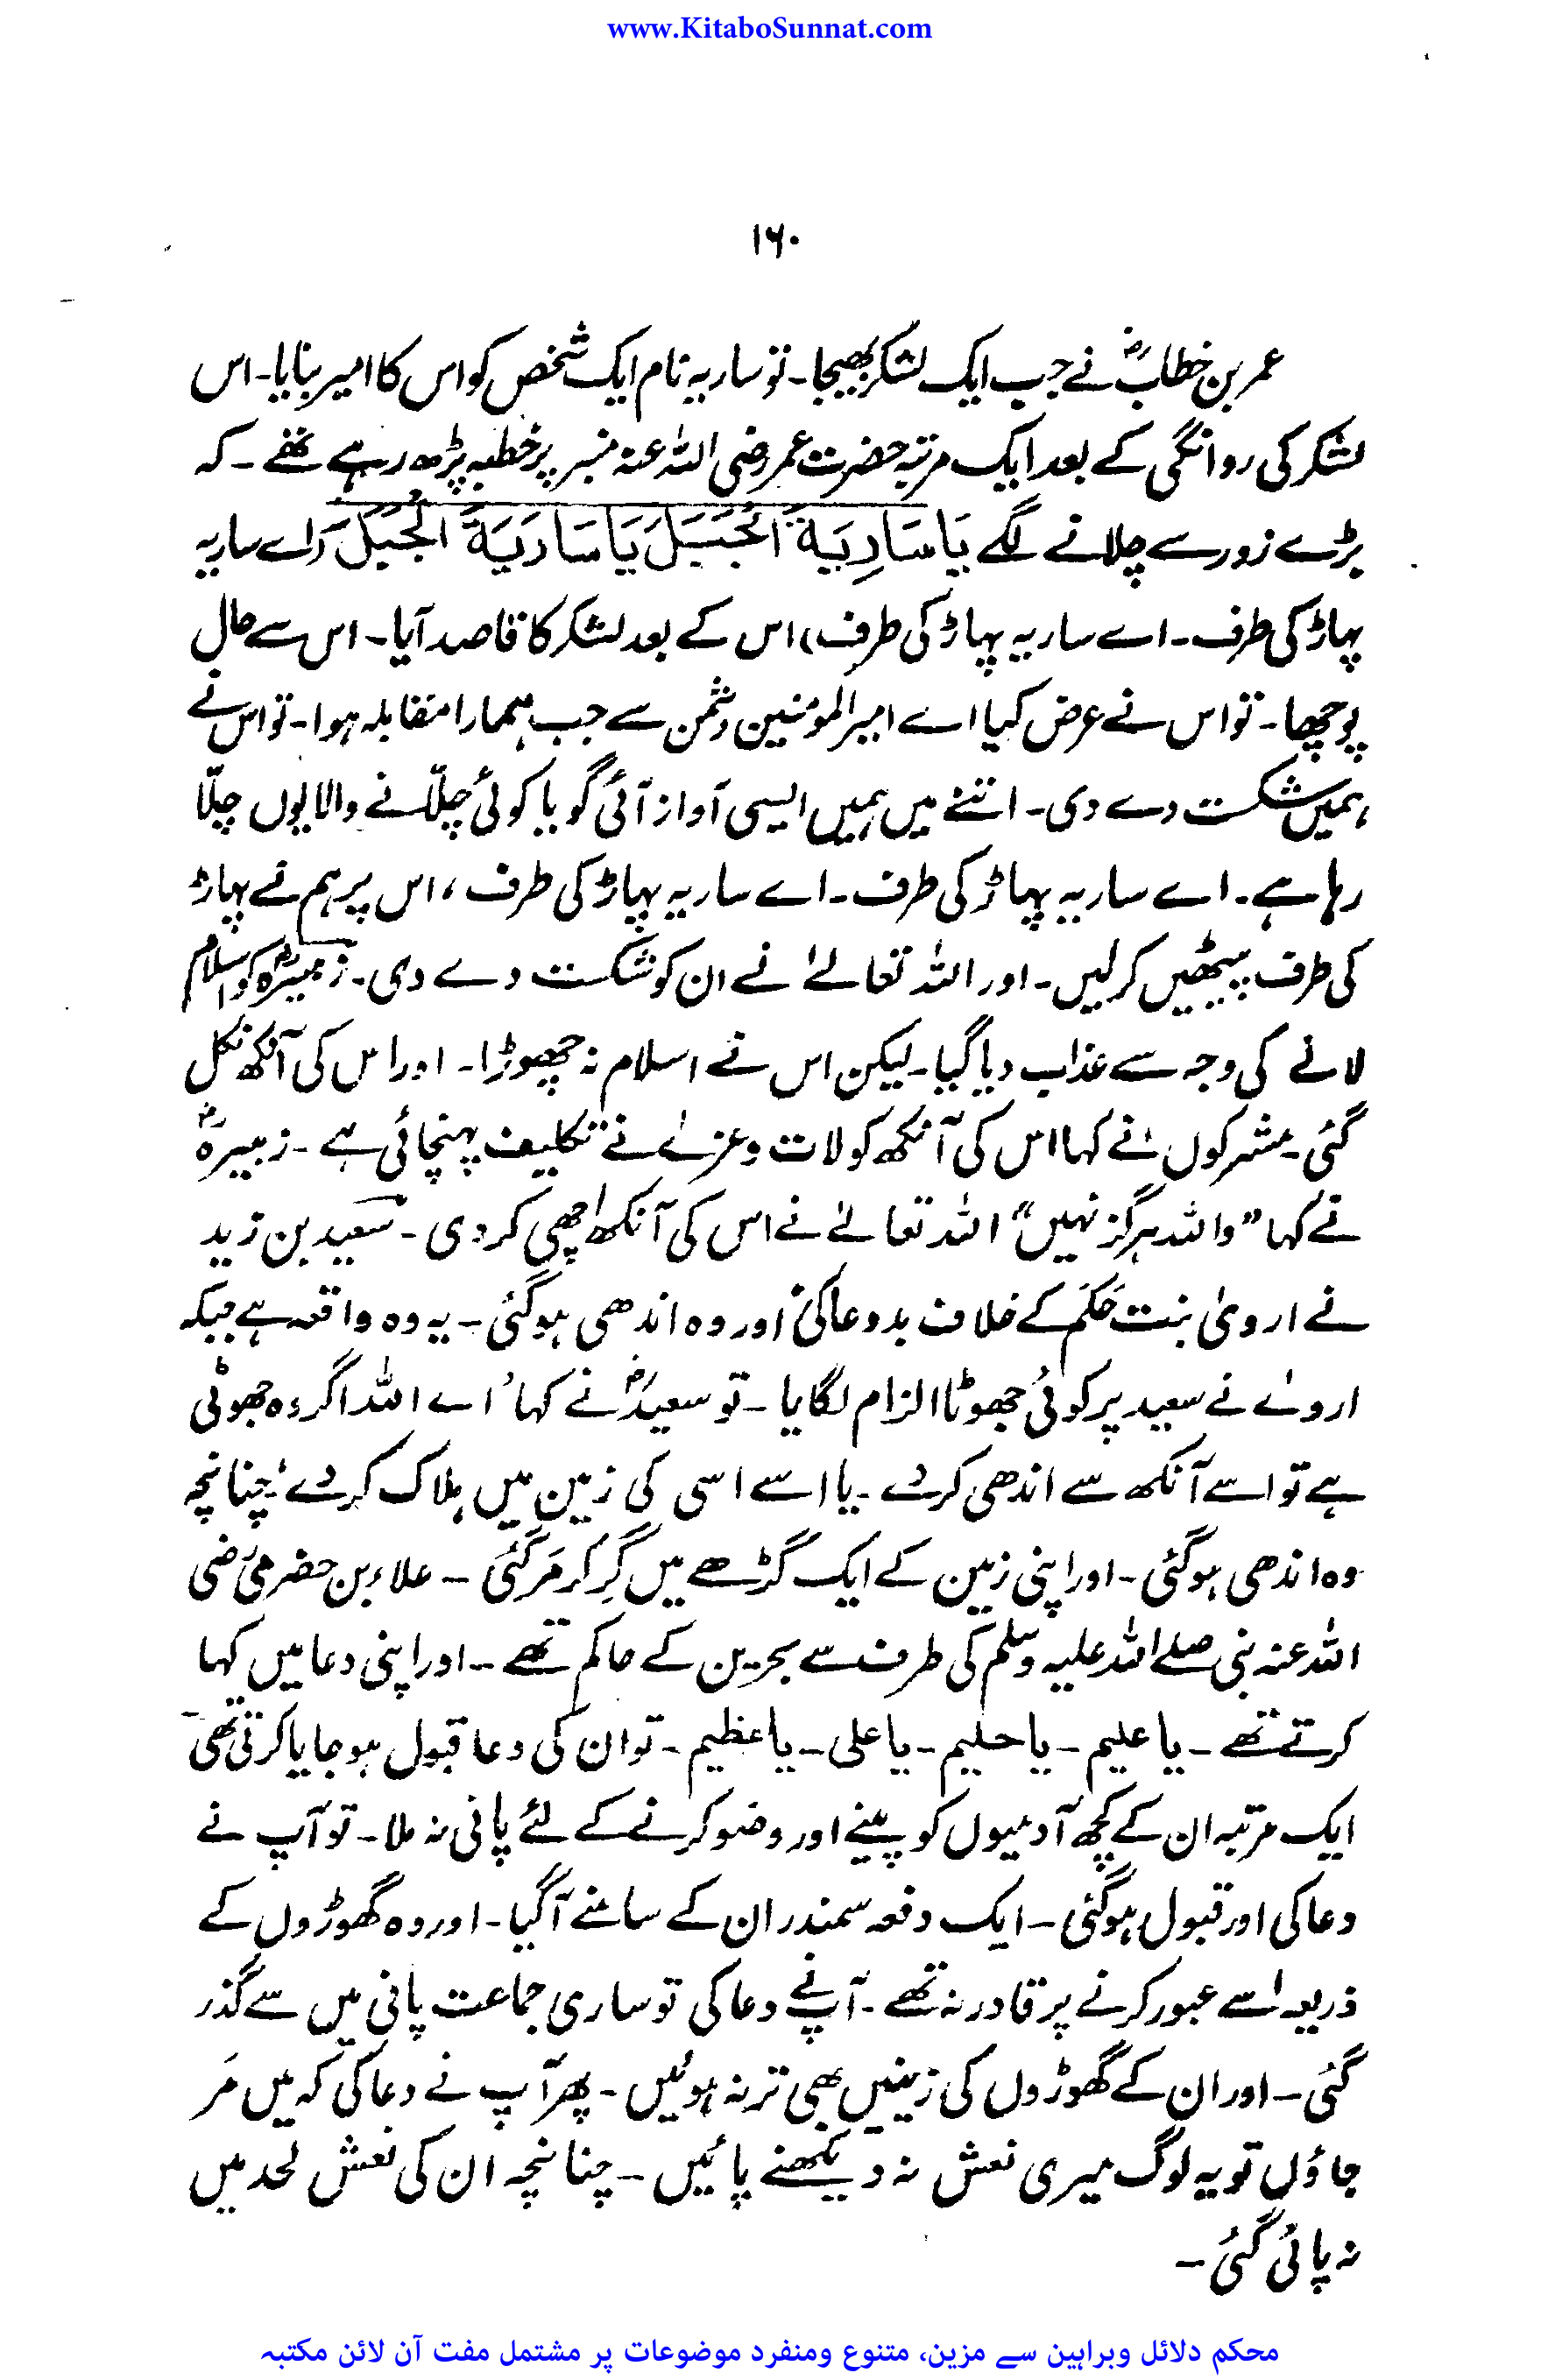 www.KitaboSunnat.com
۱۶۰
عمر بن خطابؓ نے جب ایک لشکر بھیجا۔ تو ساریہ نام ایک شخص کو اس کا امیر بنایا۔ اس
لشکر کی روانگی کے بعد ایک مرتبہ حضرت عمر رضی اللہ عنہ منبر پر خطبہ پڑھ رہے تھے۔ کہ
بڑے زور سے چلانے لگے یَا سَارِیَةَ الْجَبَلَ یَا سَارَیَةَ الْجَبَلَ (اے ساریہ
پہاڑ کی طرف۔ اے ساریہ پہاڑ کی طرف) اس کے بعد لشکر کا قاصد آیا۔ اس سے حال
پوچھا۔ تو اس نے عرض کیا اے امیر المومنین دشمن سے جب ہمارا مقابلہ ہوا۔ تو اس نے
ہمیں شکست دے دی۔ اتنے میں ہمیں ایسی آواز آئی گویا کوئی چلّانے والا یوں چلّا
رہا ہے۔ اے ساریہ پہاڑ کی طرف۔ اے ساریہ پہاڑ کی طرف، اس پر ہم نے پہاڑ
کی طرف پیٹھیں کر لیں۔ اور اللہ تعالےٰ نے ان کو شکست دے دی۔ زبیرہؓ کو اسلام
لانے کی وجہ سے عذاب دیا گیا۔ لیکن اس نے اسلام نہ چھوڑا۔ اور اس کی آنکھ نکل
گئی۔ مشرکوں نے کہا اس کی آنکھ کو لات و عزےٰ نے تکلیف پہنچائی ہے۔ زبیرہؓ
نے کہا ”واللہ ہرگز نہیں“ اللہ تعالےٰ نے اس کی آنکھ اچھی کر دی۔ سعید بن زید
نے ارویٰ بنت حَکَم کے خلاف بددعا کی اور وہ اندھی ہو گئی۔ یہ وہ واقعہ ہے جبکہ
اروےٰ نے سعید پر کوئی جھوٹا الزام لگایا۔ تو سعیدؓ نے کہا ’اے اللہ اگر وہ جھوٹی
ہے تو اسے آنکھ سے اندھی کر دے۔ یا اسے اسی کی زمین میں ہلاک کر دے‘ چنانچہ
وہ اندھی ہو گئی۔ اور اپنی زمین کے ایک گڑھے میں گِر کر مَر گئی۔ علاء بن حضرمی رضی
اللہ عنہ نبی صلے اللہ علیہ وسلم کی طرف سے بحرین کے حاکم تھے۔ اور اپنی دعا میں کہا
کرتے تھے۔ یا علیم۔ یا حلیم۔ یا علی۔ یا عظیم۔ تو ان کی دعا قبول ہو جایا کرتی تھی۔
ایک مرتبہ ان کے کچھ آدمیوں کو پینے اور وضو کرنے کے لئے پانی نہ ملا۔ تو آپ نے
دعا کی اور قبول ہو گئی۔ ایک دفعہ سمندر ان کے سامنے آ گیا۔ اور وہ گھوڑوں کے
ذریعہ اسے عبور کرنے پر قادر نہ تھے۔ آپنے دعا کی تو ساری جماعت پانی میں سے گذر
گئی۔ اور ان کے گھوڑوں کی زینیں بھی تر نہ ہوئیں۔ پھر آپ نے دعا کی کہ میں مَر
جاؤں تو یہ لوگ میری نعش نہ دیکھنے پائیں۔ چنانچہ ان کی نعش لحد میں
نہ پائی گئی۔
محکم دلائل وبراہین سے مزین، متنوع ومنفرد موضوعات پر مشتمل مفت آن لائن مکتبہ